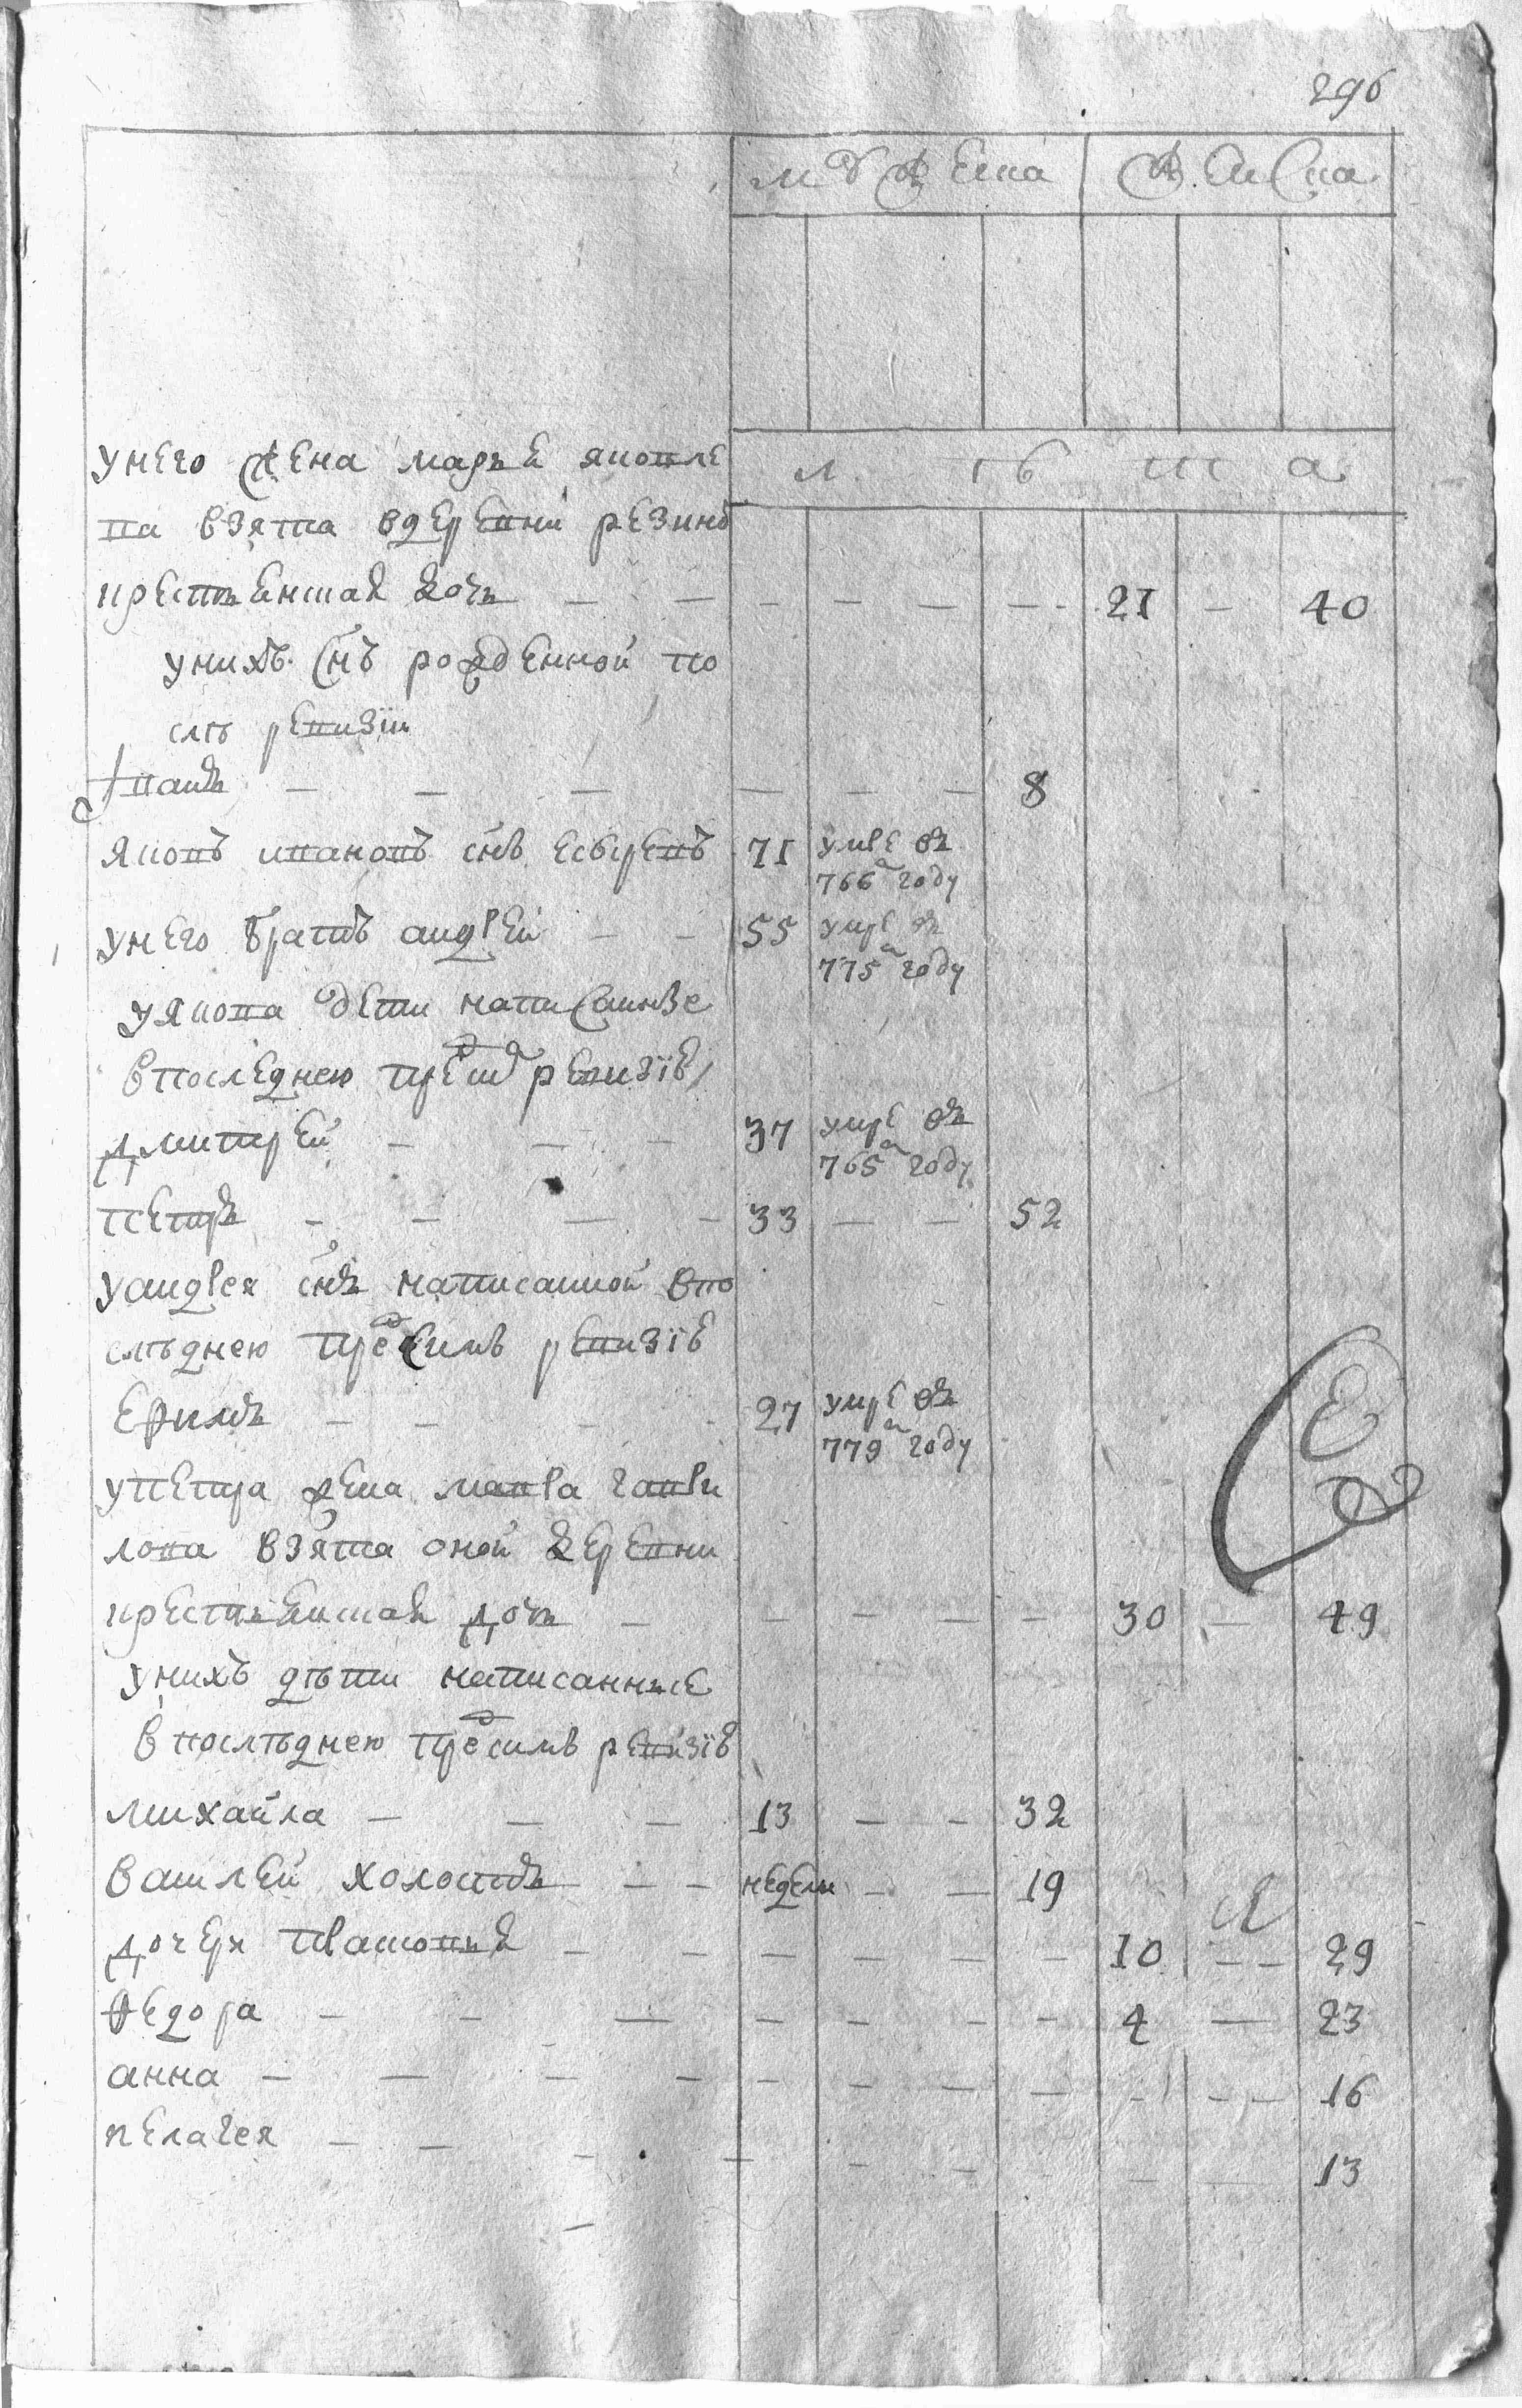 296
мужеска женска
лѣта
у него жена марья яковле
ва взята в деревни
крестьянская дочь — — — — — — 21 — 40
у нихъ снъ рожденной по
слѣ ревизіи
Иванъ — — — — — — 8
Яковъ ивановъ снъ 71 умре въ
766м году
у него братъ андрей — — 55 умре въ
775м году
у якова дети написанные
в последнею пред сим ревизіе
дмитрей — — — 37 умре въ
765м году
петръ — — — — 33 — — 52
у андрея снъ написанной в по
слѣднею пред симъ ревизіе
Ефимъ — — — 27 умре въ
779м году
у петра жена мавра гаври
лова взята оной деревни
крестьянская дочь — — — — — 30 — 49
у нихъ дѣти написанные
в послѣднею пред симъ ревизіе
михайла — — — 13 — — 32
василей холостъ — — — недели — — 19
дочери прасковья — — — — — — 10 — — 29
федора — — — — — — — 4 — 23
анна — — — — — — — — — — — 16
пелагея — — — — — — — — — 13